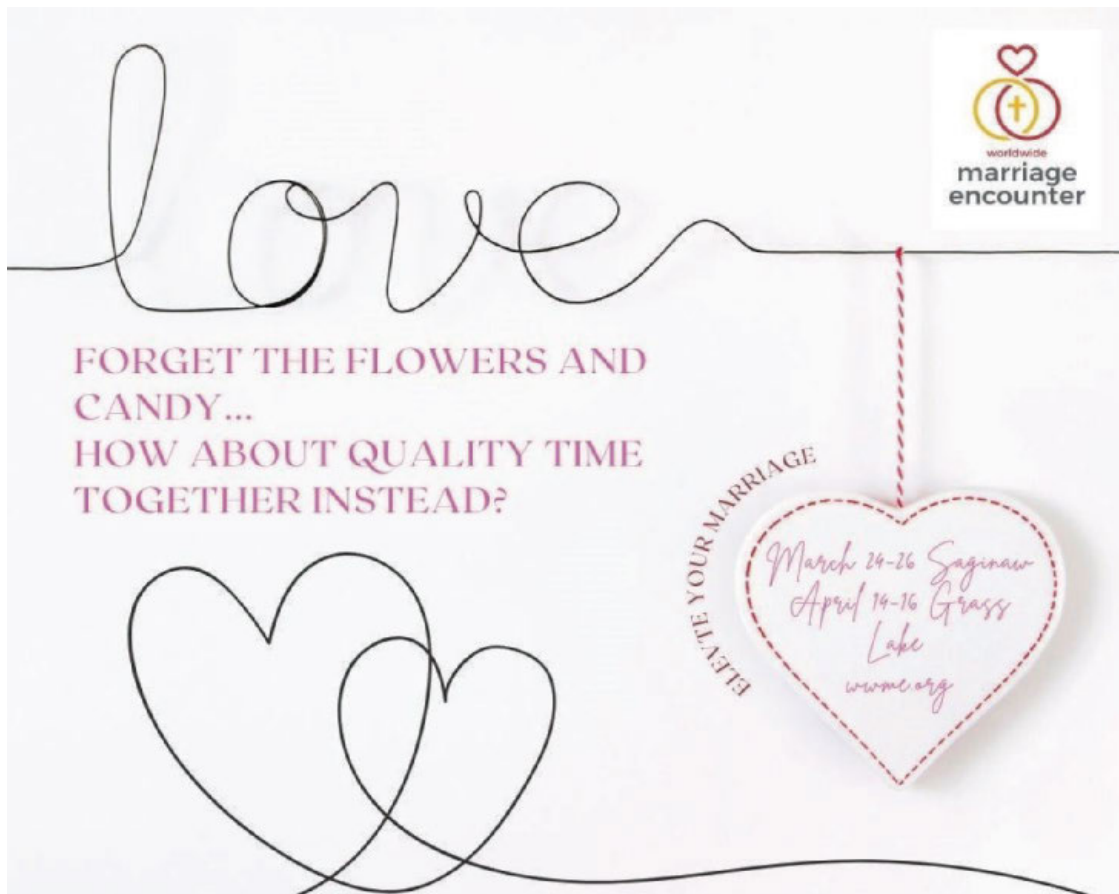 love
worldwide
marriage
encounter
FORGET THE FLOWERS AND
CANDY...
HOW ABOUT QUALITY TIME
TOGETHER INSTEAD?
ELEVTE YOUR MARRIAGE
March 24-26 Saginaw
April 14-16 Grass
Lake
wwme.org